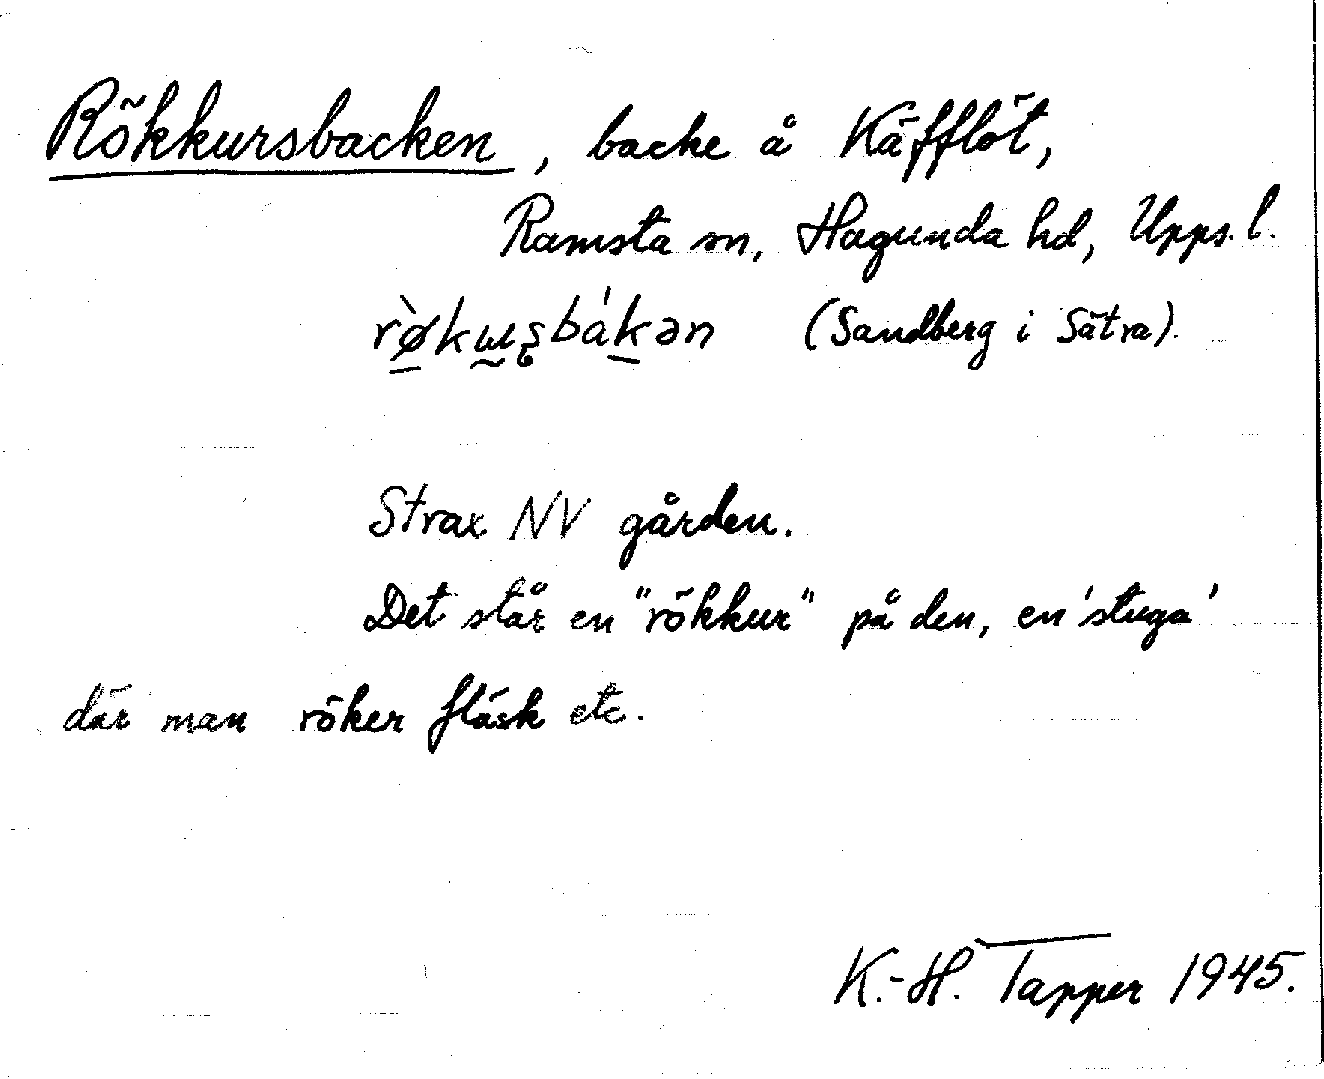 Rökkursbacken, backe å Käfflöt,
Ramsta sn, Hagunda hd, Upps. l.
(Sandberg i Sätra).
Strax NV gården.
Det står en "rökkur" på den, en 'stuga'
där man röker fläsk etc.
K.-H. Tapper 1945.